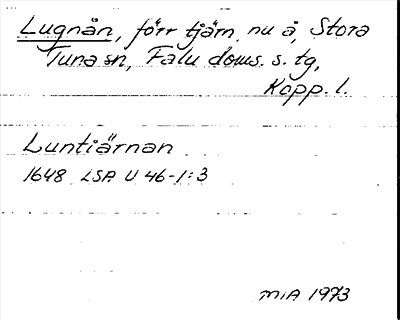 Lugnån, förr tjärn, nu å, Stora
Tuna sn, Falu doms. s. tg,
Kopp. l.
Luntiärnan
1648 LSA U 46-1:3
MiA 1973